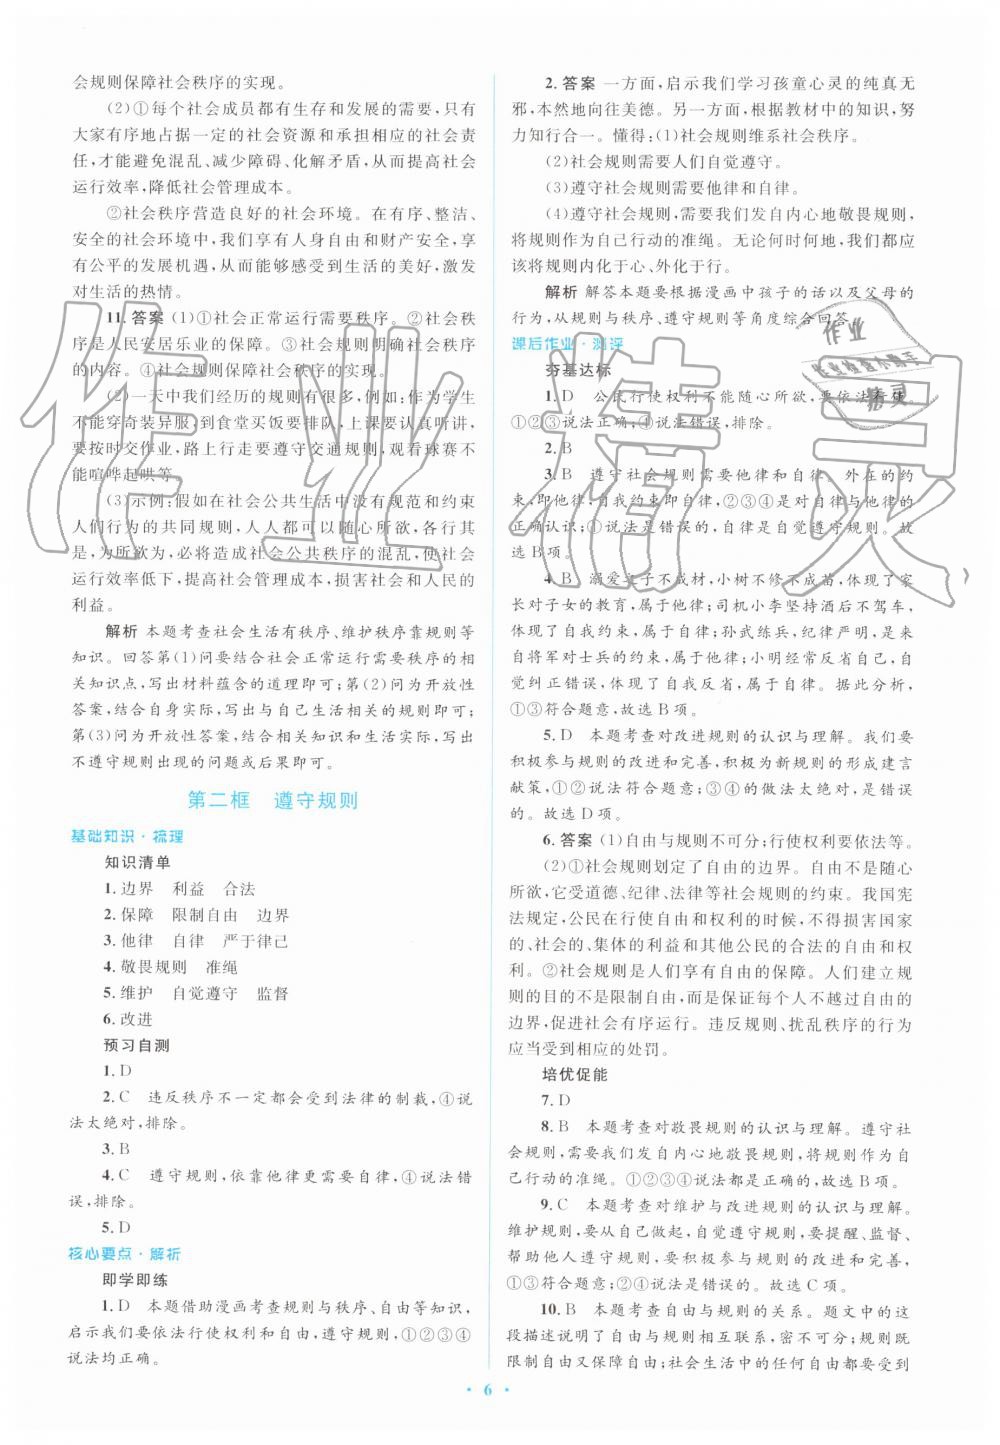 会规则保障社会秩序的实现。
(2)①每个社会成员都有生存和发展的需要,只有
大家有序地占据一定的社会资源和承担相应的社会责
任,才能避免混乱、减少障碍、化解矛盾,从而提高社会
运行效率,降低社会管理成本。
②社会秩序营造良好的社会环境。在有序、整洁、
安全的社会环境中,我们享有人身自由和财产安全,享
有公平的发展机遇,从而能够感受到生活的美好,激发
对生活的热情。
11. 答案 (1)①社会正常运行需要秩序。②社会秩
序是人民安居乐业的保障。③社会规则明确社会秩序
的内容。④社会规则保障社会秩序的实现。
(2)一天中我们经历的规则有很多,例如:作为学生
不能穿奇装异服,到食堂买饭要排队,上课要认真听讲,
要按时交作业,路上行走要遵守交通规则,观看球赛不
能喧哗起哄等。
(3)示例:假如在社会公共生活中没有规范和约束
人们行为的共同规则,人人都可以随心所欲,各行其是,
为所欲为,必将造成社会公共秩序的混乱,使社会
运行效率低下,提高社会管理成本,损害社会和人民的
利益。
解析 本题考查社会生活有秩序、维护秩序靠规则等
知识。回答第(1)问要结合社会正常运行需要秩序的相
关知识点,写出材料蕴含的道理即可;第(2)问为开放性
答案,结合自身实际,写出与自己生活相关的规则即可;
第(3)问为开放性答案,结合相关知识和生活实际,写出
不遵守规则出现的问题或后果即可。
第二框 遵守规则
基础知识·梳理
知识清单
1. 边界 利益 合法
2. 保障 限制自由 边界
3. 他律 自律 严于律己
4. 敬畏规则 准绳
5. 维护 自觉遵守 监督
6. 改进
预习自测
1. D
2. C 违反秩序不一定都会受到法律的制裁,④说
法太绝对,排除。
3. B
4. C 遵守规则,依靠他律更需要自律,④说法错
误,排除。
5. D
核心要点·解析
即学即练
1. D 本题借助漫画考查规则与秩序、自由等知识,
启示我们要依法行使权利和自由,遵守规则,①②③④
说法均正确。
2. 答案 一方面,启示我们学习孩童心灵的纯真无
邪,本然地向往美德。另一方面,根据教材中的知识,努
力知行合一。懂得:(1)社会规则维系社会秩序。
(2)社会规则需要人们自觉遵守。
(3)遵守社会规则需要他律和自律。
(4)遵守社会规则,需要我们发自内心地敬畏规则,
将规则作为自己行动的准绳。无论何时何地,我们都应
该将规则内化于心、外化于行。
解析 解答本题要根据漫画中孩子的话以及父母的
行为,从规则与秩序、遵守规则等角度综合回答。
课后作业·测评
夯基达标
1. D 公民行使权利不能随心所欲,要依法行使。
①②③说法正确;④说法错误,排除。
2. B
3. B 遵守社会规则需要他律和自律。外在的约
束,即他律;自我约束即自律,②③④是对自律与他律的
正确认识;①说法是错误的,自律是自觉遵守规则。故
选B项。
4. B 溺爱之子不成材,小树不修不成苗,体现了家
长对子女的教育,属于他律;司机小李坚持酒后不驾车,
体现了自我约束,属于自律;孙武练兵,纪律严明,是来
自将军对士兵的约束,属于他律;小明经常反省自己,自
觉纠正错误,体现了自我反省,属于自律。据此分析,
①③符合题意,故选B项。
5. D 本题考查对改进规则的认识与理解。我们要
积极参与规则的改进和完善,积极为新规则的形成建言
献策,①②说法符合题意;③④做法太绝对,应排除。
故选D项。
6. 答案 (1)自由与规则不可分;行使权利要依法等。
(2)①社会规则划定了自由的边界。自由不是随心
所欲,它受道德、纪律、法律等社会规则的约束。我国宪
法规定,公民在行使自由和权利的时候,不得损害国家
的、社会的、集体的利益和其他公民的合法的自由和权
利。②社会规则是人们享有自由的保障。人们建立规
则的目的不是限制自由,而是保证每个人不越过自由的
边界,促进社会有序运行。违反规则、扰乱秩序的行为
应当受到相应的处罚。
培优促能
7. D
8. B 本题考查对敬畏规则的认识与理解。遵守社
会规则,需要我们发自内心地敬畏规则,将规则作为自
己行动的准绳。①②③④说法都是正确的,故选B项。
9. C 本题考查对维护与改进规则的认识与理解。
维护规则,要从自己做起,自觉遵守规则,要提醒、监督、
帮助他人遵守规则,要积极参与规则的改进和完善,
①③符合题意;②④说法是错误的。故选C项。
10. B 本题考查自由与规则的关系。题文中的这
段描述说明了自由与规则相互联系,密不可分;规则既
限制自由又保障自由;社会生活中的任何自由都要受到
· 6 ·
作业精灵
作业
精灵